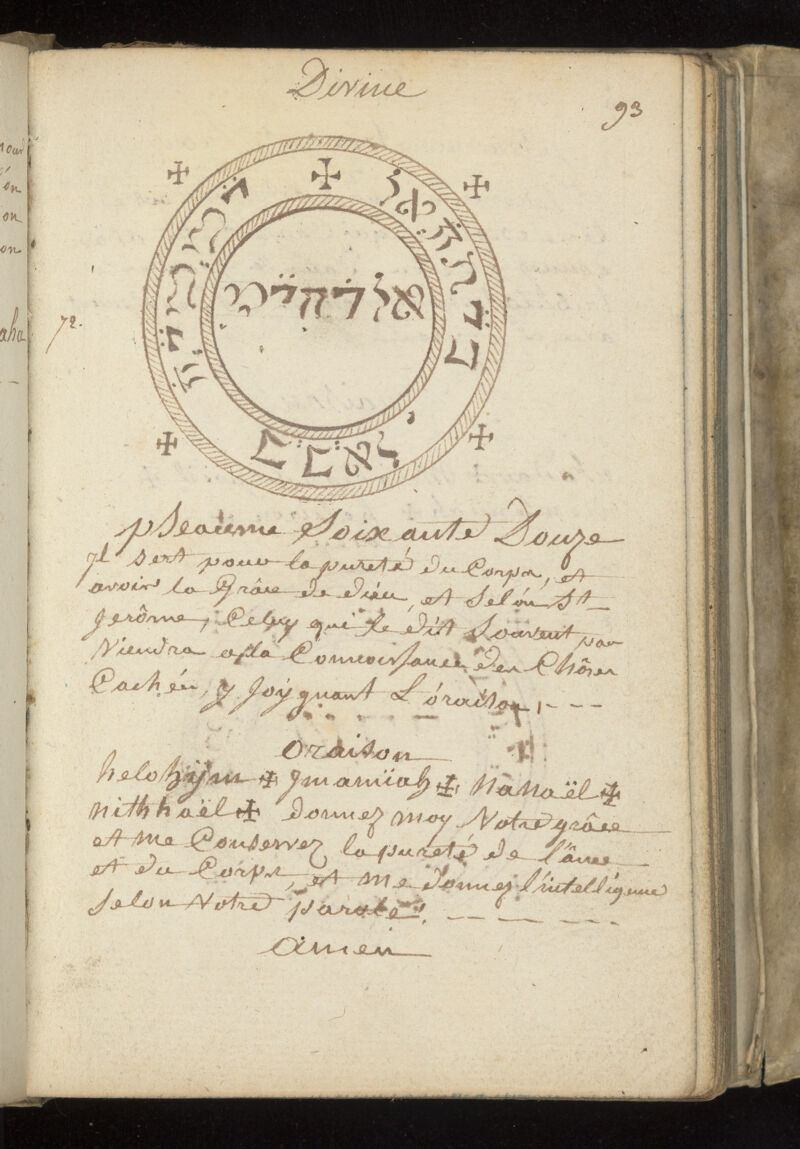 Divine
93
72.
pseaume Soixante Douze
jl sert pour la pureté du Corps, et
avoir la Grâce de dieu, et selon St
jerôme, Celuy qui le dit Souvent par
Viendra a la Connoissance des Chôses
Cachées, y joÿgnant L'oraison, - - -
oraison
heloHÿm ✠ jmamïah ✠ nanaël ✠
nithhaël ✠ donnez moy Votre grâce
et me Conservez la pureté de l'âme
et du Corps, et me donnez l'intelligence
selon Votre parole. - - - -
amen
noud
én
on
on
aha